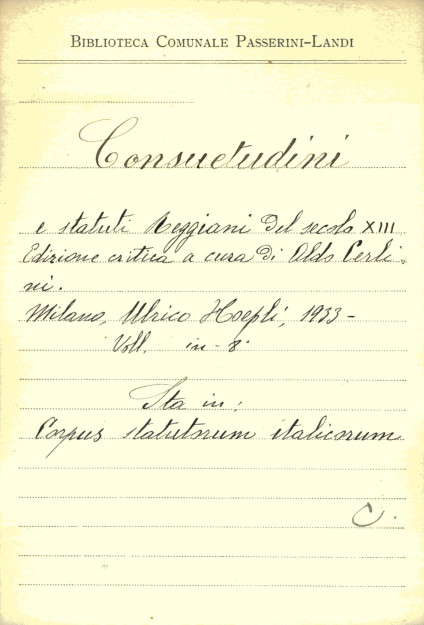 BIBLIOTECA COMUNALE PASSERINI-LANDI
Consuetudini
e statuti Reggiani del secolo XIII
Edizione critica a cura di Aldo Cerli-
ni.
Milano, Ulrico Hoepli, 1933 -
Voll. in-8°
Sta in:
Corpus statutorum italicorum
C.